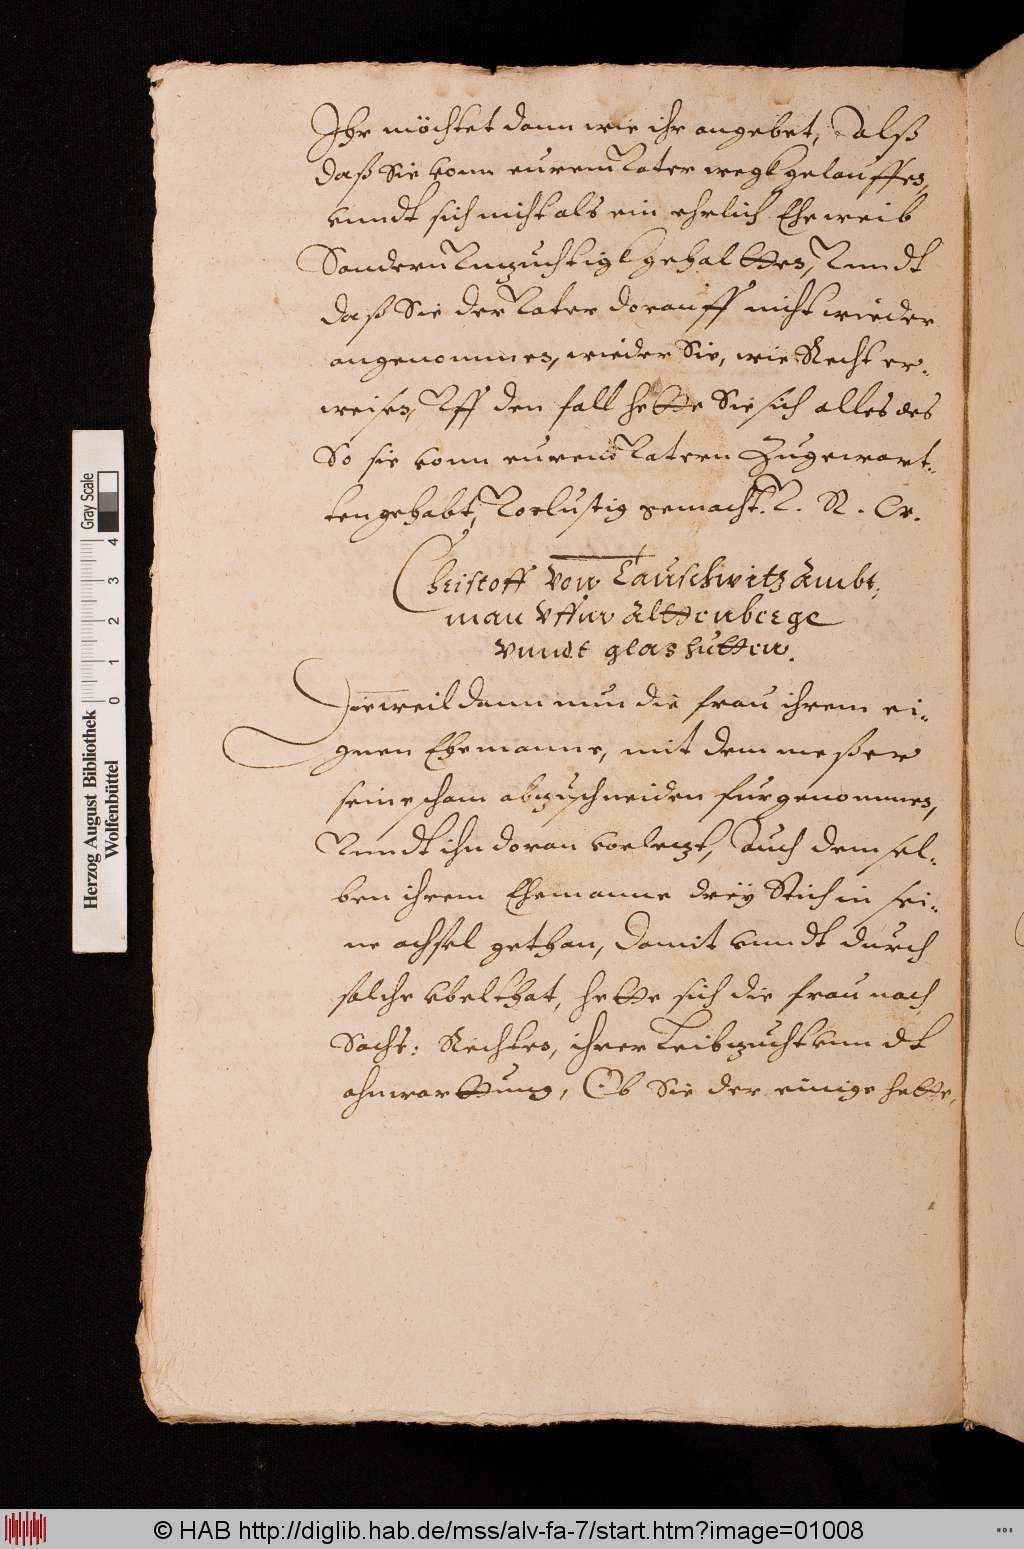 Ihr möchtet dann wie ihr angebet, alß
daß Sie vonn eurem Vater wegk gelauffen,
vnndt sich nicht als ein ehrlich Eheweib
Sondern Vnzuchtigk gehaltten, Vnndt
daß Sie der Vater dorauff nicht wieder
angenommen, wieder Sie, wie Recht er-
weisen, Vff den fall hette Sie sich alles des
So sie vonn eurem Vatern Zugewart-
ten gehabt, Vorlustig gemacht. V. R. W.
Christoff von Tauschwitz Ambt-
man vffm Alttenberge
vnndt glashutten.
Dieweil dann nun die frau ihrem ei-
gnen Ehemanne, mit dem meßer
seine scham abzuschneiden furgenommen,
Vnndt ihn doran vorletzt, Auch demsel-
ben ihrem Ehemanne dreÿ Stich in sei-
ne achsel gethan, Damit vnndt durch
solche vbelthat, hette sich die frau nach
Sachs: Rechten, ihrer Leibzucht vnndt
ahnwarttung, Ob Sie der einige hette,
Herzog August Bibliothek
Wolfenbüttel
0 1 2 3 4
Gray Scale
© HAB http://diglib.hab.de/mss/alv-fa-7/start.htm?image=01008